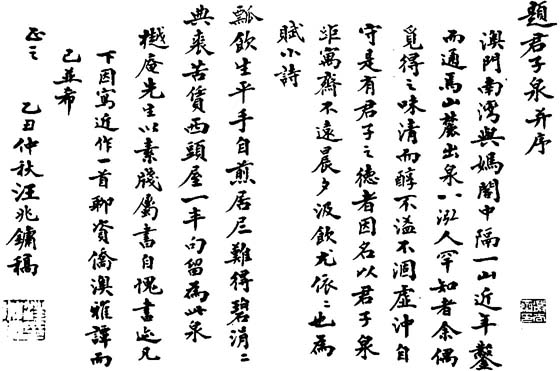 題君子泉并序
澳門南灣與媽閣中隔一山近年鑿
而通焉山麓出泉一泓人罕知者余偶
覓得之味清而醇不溢不涸虛沖自
守是有君子之德者因名以君子泉
距寓齋不遠晨夕汲飲尤依〻也為
賦小詩
瓢飲生平手自煎居𡰥難得碧涓〻
典裘苦賃西頭屋一半句留為此泉
樾庵先生以素牋屬書自愧書迹凡
下因寫近作一首聊資僑澳雅譚而
已並希
正之 乙丑仲秋汪兆鏞稿